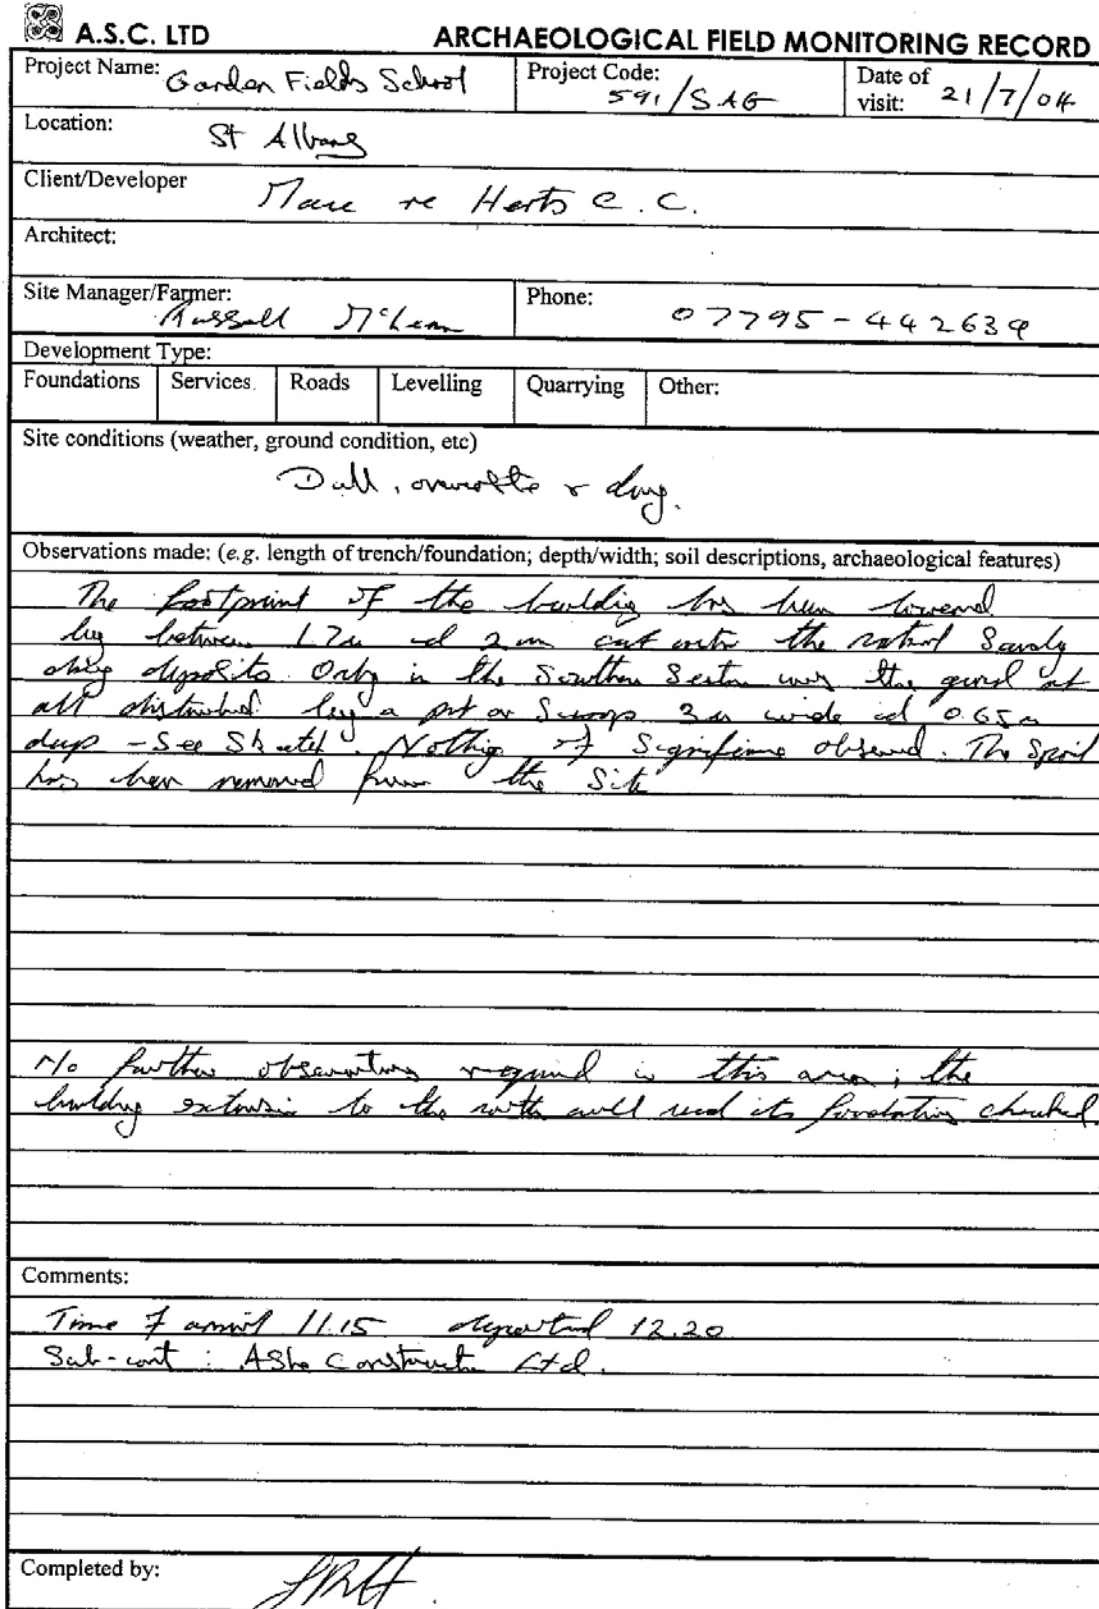 A.S.C. LTD ARCHAEOLOGICAL FIELD MONITORING RECORD
Project Name: Garden Fields School Project Code: 591/SAG Date of visit: 21/7/04
Location: St Albans
Client/Developer re Herts C.C.
Architect:
Site Manager/Farmer: Russell McLean Phone: 07795-442639
Development Type:
Foundations Services Roads Levelling Quarrying Other:
Site conditions (weather, ground condition, etc)
Dull, &
Observations made: (e.g. length of trench/foundation; depth/width; soil descriptions, archaeological features)
The footprint of the building has been lowered
by between 1.7m and 2m cut into the natural Sandy
clay deposits. Only in the Southern Section was the ground at
all disturbed by a pit or Scoop 3m wide and 0.65m
deep - See Sketch. Nothing of Significance observed. The Spoil
has been removed from the Site
No further observations required in this area; the
building extension to the north will need its foundations checked.
Comments:
Time of arrival 11.15 departed 12.20
Sub-cont: Ashe Construction Ltd.
Completed by: